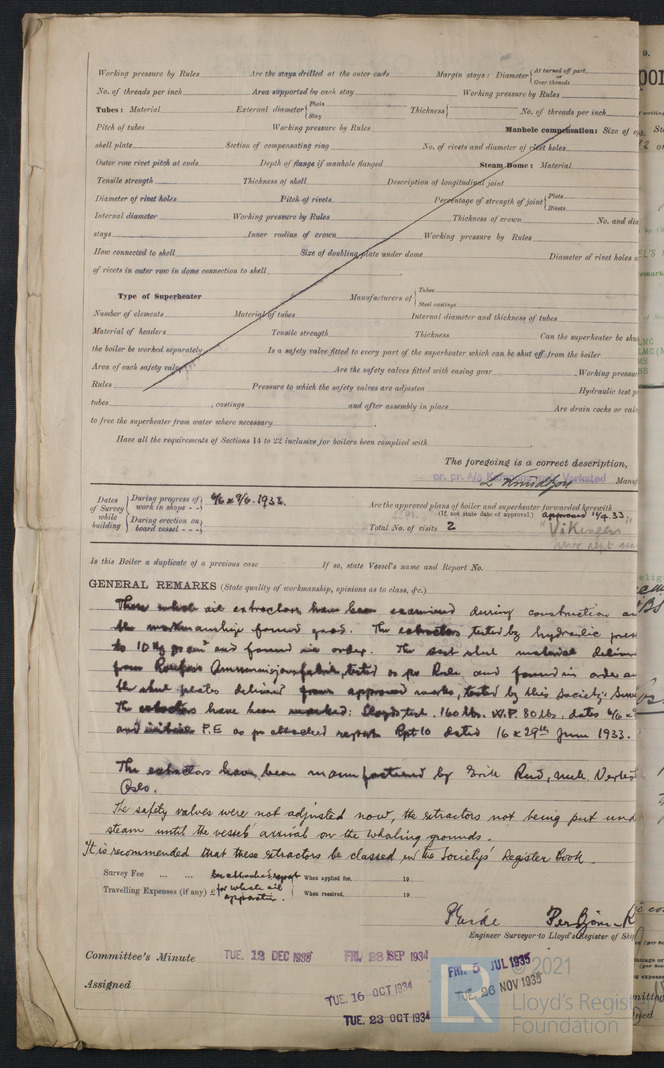 Working pressure by Rules Are the stays drilled at the outer ends Margin stays: Diameter { At turned off part Over threads
No. of threads per inch Area supported by each stay Working pressure by Rules
Tubes: Material External diameter { Plain Stay Thickness { No. of threads per inch
Pitch of tubes Working pressure by Rules Manhole compensation: Size of
shell plate Section of compensating ring No. of rivets and diameter of rivet holes
Outer row rivet pitch at ends Depth of flange if manhole flanged Steam Dome: Material
Tensile strength Thickness of shell Description of longitudinal joint
Diameter of rivet holes Pitch of rivets Percentage of strength of joint { Plate Rivets
Internal diameter Working pressure by Rules Thickness of crown No. and dia
stays Inner radius of crown Working pressure by Rules
How connected to shell Size of doubling plate under dome Diameter of rivet holes a
of rivets in outer row in dome connection to shell
Type of Superheater Manufacturers of { Tubes Steel castings
Number of elements Material of tubes Internal diameter and thickness of tubes
Material of headers Tensile strength Thickness Can the superheater be shu
the boiler be worked separately Is a safety valve fitted to every part of the superheater which can be shut off from the boiler
Area of each safety valve Are the safety valves fitted with easing gear Working pressu
Rules Pressure to which the safety valves are adjusted Hydraulic test p
tubes , castings and after assembly in place Are drain cocks or valv
to free the superheater from water where necessary
Have all the requirements of Sections 14 to 22 inclusive for boilers been complied with
The foregoing is a correct description,
Manuf
Dates of Survey while building { During progress of work in shops - - } 6/6 & 8/6.1933.
{ During erection on board vessel - - }
Are the approved plans of boiler and superheater forwarded herewith
(If not state date of approval.) approved 11/4.33.
Total No. of visits 2 "Vikingen"
Is this Boiler a duplicate of a previous case If so, state Vessel's name and Report No.
GENERAL REMARKS (State quality of workmanship, opinions as to class, &c.)
These whale oil extractors have been examined during construction an
the workmanship found good. The extractors tested by hydraulic pres
to 10 kg pr cm² and found in order. The cast steel material deliver
from Raufoss Ammunisjonsfabrik, tested as per Rule and found in order an
the steel plates delivered from approved marks, tested by this Society's Surve
The extractors have been marked: Lloyds test. 160 lbs. W.P. 80 lbs, dates 6/6 &
and initials P.E as pr attached report Rpt 10 dated 16 & 29th June 1933.
The extractors have been manufactured by Eriks Rud, mek. Verksted
Oslo.
The safety valves were not adjusted now, the extractors not being put und
steam until the vessels' arrival on the whaling grounds.
It is recommended that these extractors be classed in the Society's Register Book.
Survey Fee ... ... See attached report When applied for, 19
Travelling Expenses (if any) £ for whale oil apparatus. When received, 19
Engineer Surveyor to Lloyd's Register of Ship
Committee's Minute TUE. 12 DEC 1933 FRI. 28 SEP 1934 FRI. 5 JUL 1935
Assigned TUE. 16 OCT 1934 TUE. 26 NOV 1935
TUE. 23 OCT 1934
© 2021
Lloyd's Register
Foundation
LR